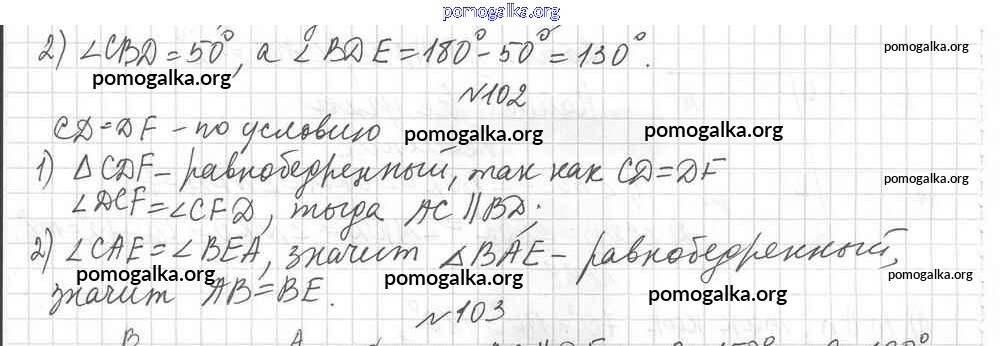 pomogalka.org
2) ∠CBD = 50°, а ∠BDE = 180° - 50° = 130°.
pomogalka.org
pomogalka.org
№102
CD = DF - по условию
pomogalka.org
pomogalka.org
1) ΔCDF - равнобедренный, так как CD = DF
pomogalka.org
∠DCF = ∠CFD, тогда AC || BD;
2) ∠CAE = ∠BEA, значит ΔBAE - равнобедренный,
pomogalka.org
pomogalka.org
pomogalka.org
значит AB = BE.
pomogalka.org
№103